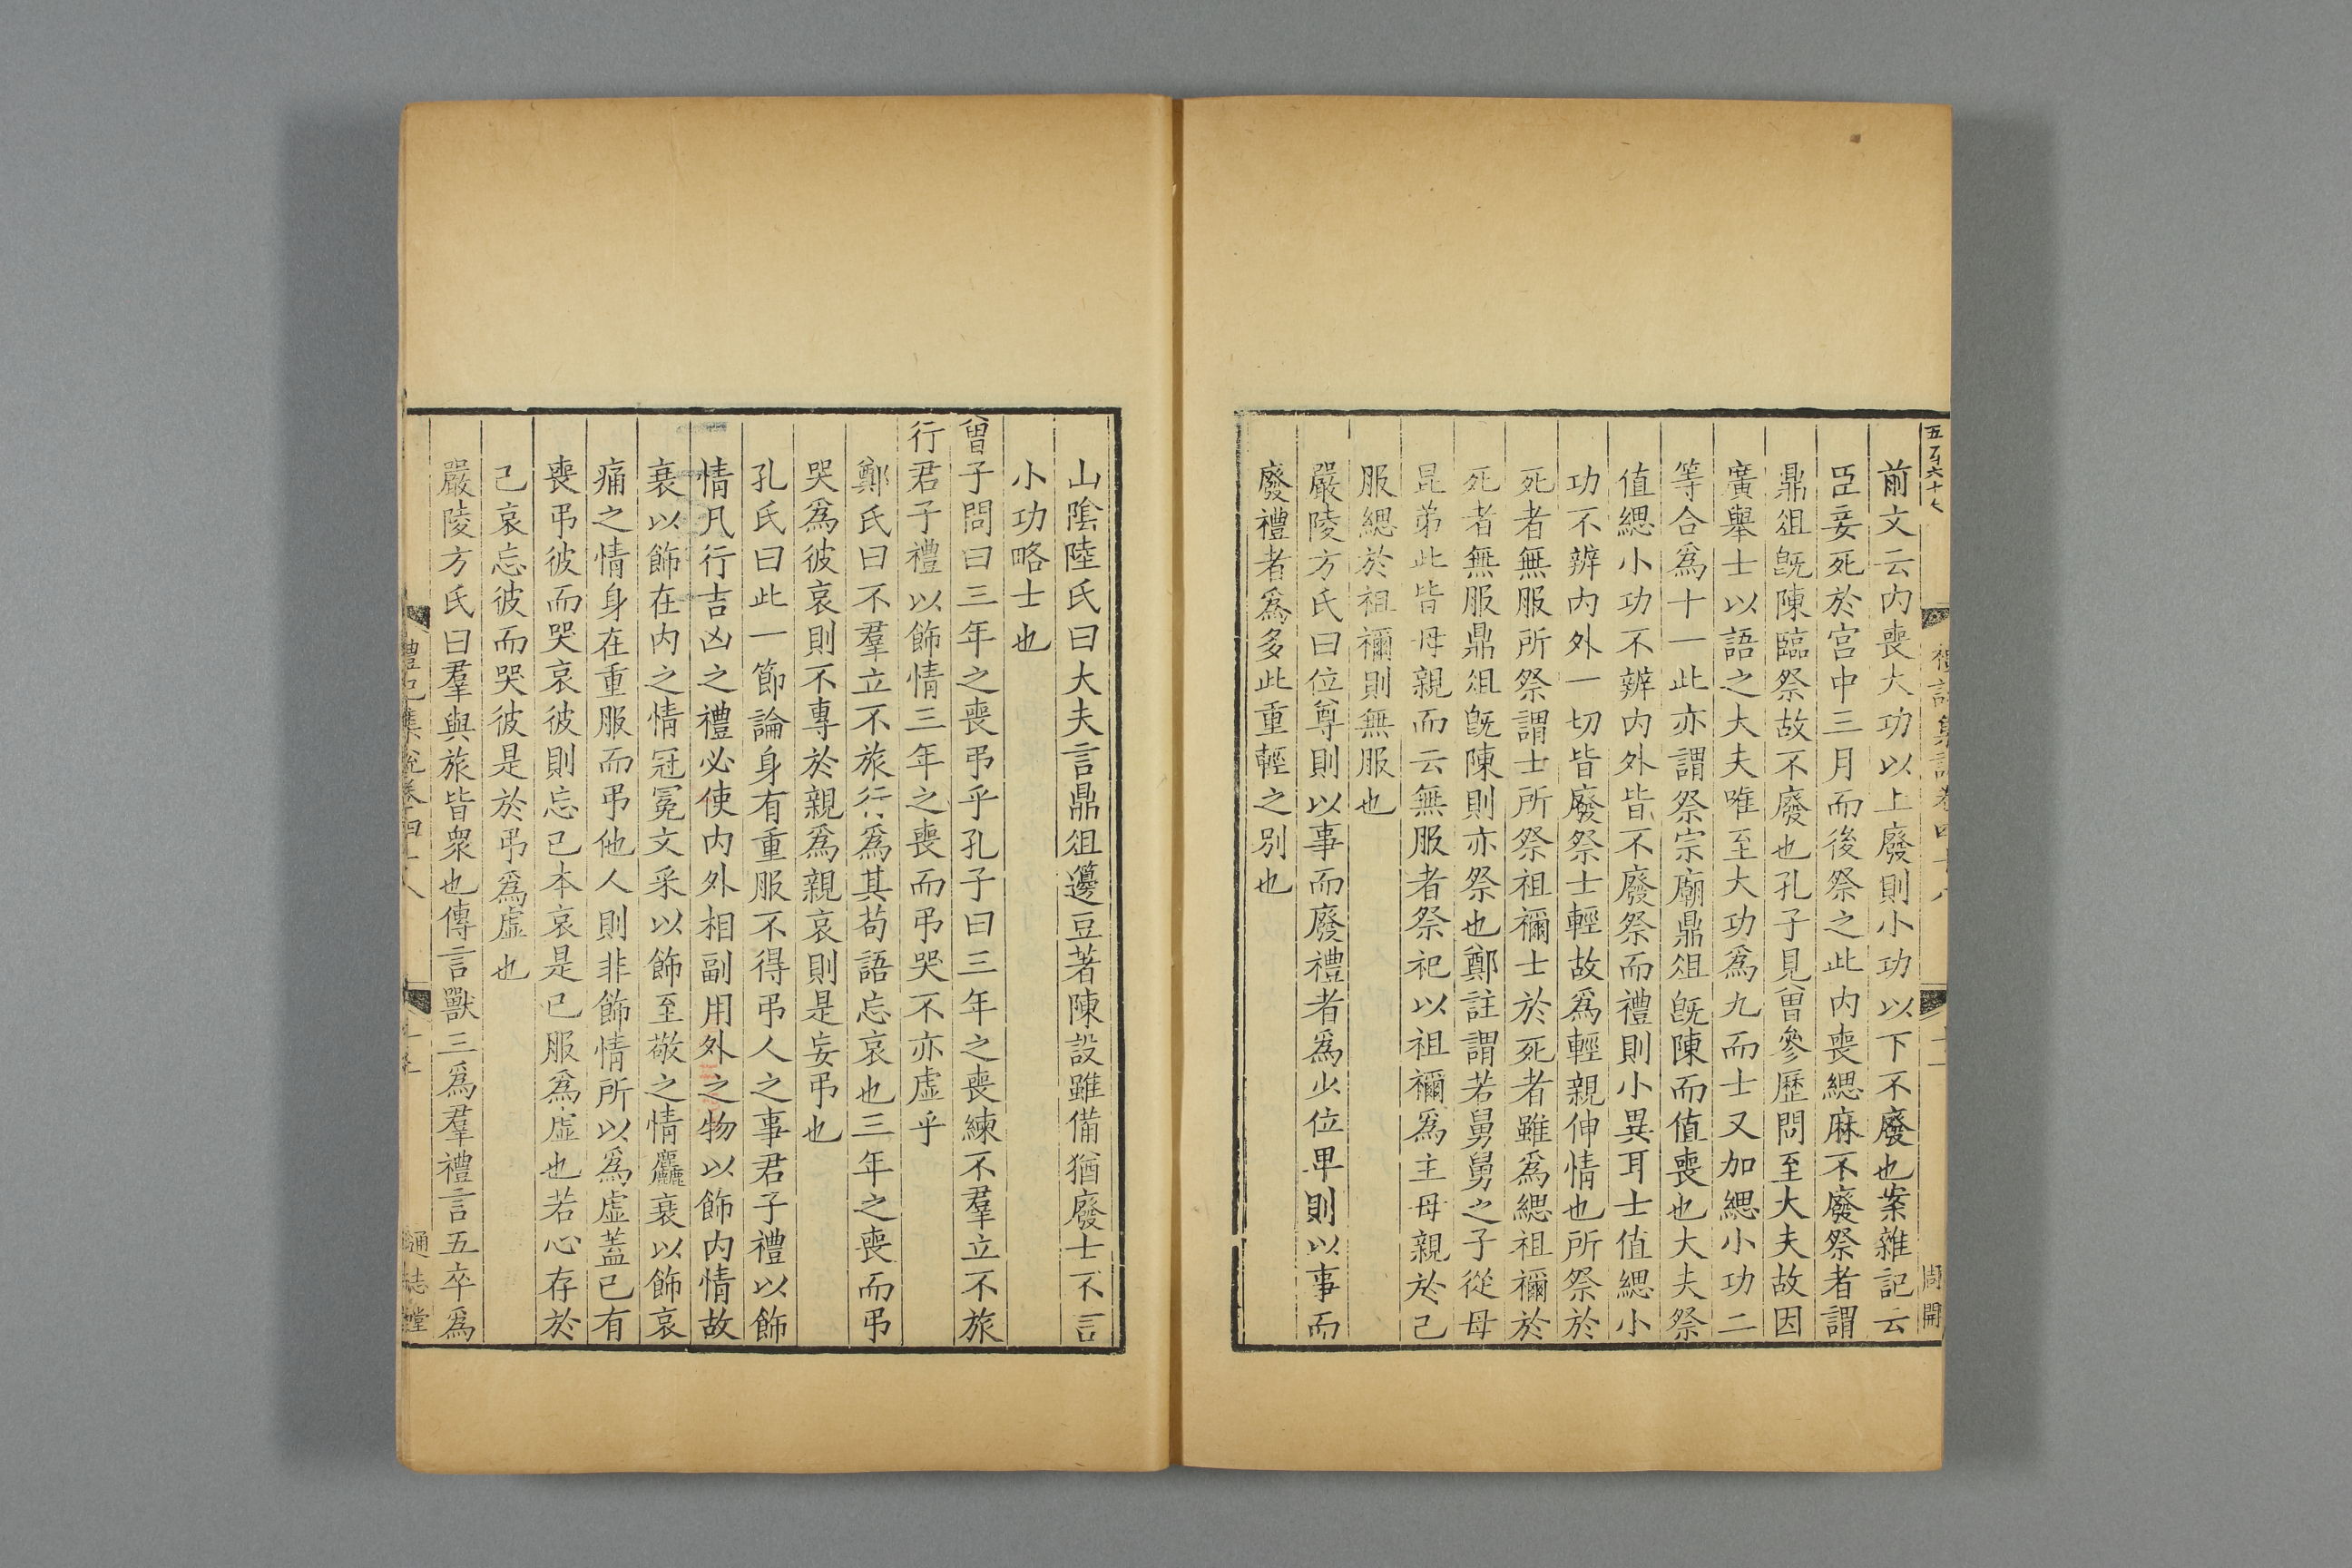 前文云内喪大功以上廢則小功以下不廢也案雜記云
臣妾死於宫中三月而後祭之此内喪緦麻不廢祭者謂
鼎俎旣陳臨祭故不廢也孔子見曾參歷問至大夫故因
廣舉士以語之大夫唯至大功爲九而士又加緦小功二
等合爲十一此亦謂祭宗廟鼎俎旣陳而值喪也大夫祭
值緦小功不辨内外皆不廢祭而禮則小異耳士值緦小
功不辨内外一切皆廢祭士輕故爲輕親伸情也所祭於
死者無服所祭謂士所祭祖禰士於死者雖爲緦祖禰於
死者無服鼎俎旣陳則亦祭也鄭註謂若舅舅之子從母
昆弟此皆母親而云無服者祭祀以祖禰爲主母親於己
服緦於祖禰則無服也
嚴陵方氏曰位尊則以事而廢禮者爲少位卑則以事而
廢禮者爲多此重輕之别也
山陰陸氏曰大夫言鼎俎籩豆著陳設雖備猶廢士不言
小功略士也
曾子問曰三年之喪弔乎孔子曰三年之喪練不羣立不旅
行君子禮以飾情三年之喪而弔哭不亦虚乎
鄭氏曰不羣立不旅行爲其苟語忘哀也三年之喪而弔
哭爲彼哀則不專於親爲親哀則是妄弔也
孔氏曰此一節論身有重服不得弔人之事君子禮以飾
情凡行吉凶之禮必使内外相副用外之物以飾内情故
衰以飾在内之情冠冕文采以飾至敬之情麤衰以飾哀
痛之情身在重服而弔他人則非飾情所以爲虚蓋己有
喪弔彼而哭哀彼則忘己本哀是己服爲虚也若心存於
己哀忘彼而哭彼是於弔爲虚也
嚴陵方氏曰羣與旅皆衆也傳言獸三爲羣禮言五卒爲
通志堂